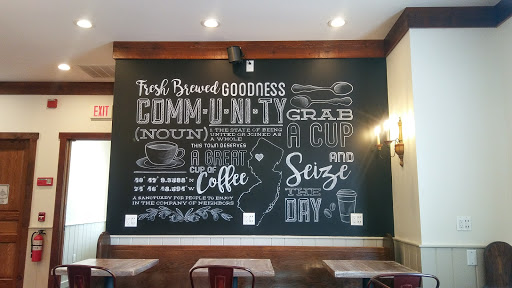 EXIT
Fresh Brewed GOODNESS
COMM-U-NI-TY
(NOUN)
1: THE STATE OF BEING
UNITED OR JOINED AS
A WHOLE
THIS TOWN DESERVES
A GREAT
CUP OF
Coffee
40° 47' 9.5388" N
74° 46' 48.894" W
A SANCTUARY FOR PEOPLE TO ENJOY
IN THE COMPANY OF NEIGHBORS
GRAB
A CUP
AND
Seize
THE
DAY